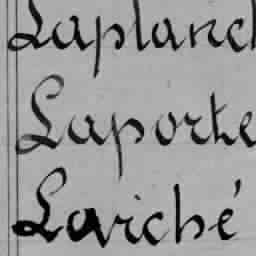 Laplanch
Laporte
Lariché